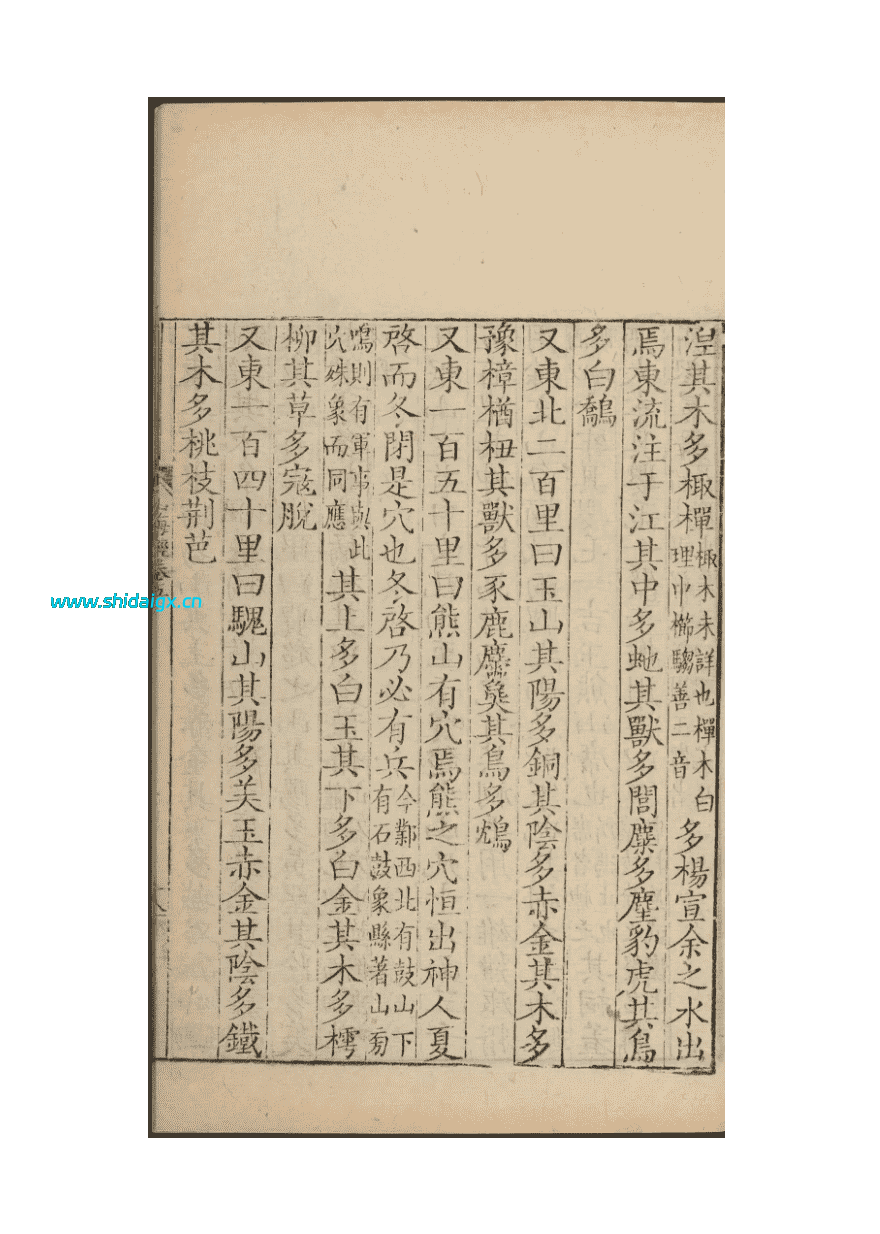 涅其木多棷樿棷木未詳也樿木白理中櫛騶善二音多楊宣余之水出
焉東流注于江其中多虵其獸多閭麋多麈豹虎其鳥
多白鷮
又東北二百里曰玉山其陽多銅其陰多赤金其木多
豫樟楢杻其獸多豕鹿麢㚟其鳥多鴆
又東一百五十里曰熊山有穴焉熊之穴恒出神人夏
啓而冬閉是穴也冬啓乃必有兵今鄴西北有鼓山下有石鼓象縣著山旁
鳴則有軍事與此穴殊象而同應其上多白玉其下多白金其木多樗
柳其草多寇脫
又東一百四十里曰騩山其陽多美玉赤金其陰多鐵
其木多桃枝荆芭
海經卷
www.shidaigx.cn